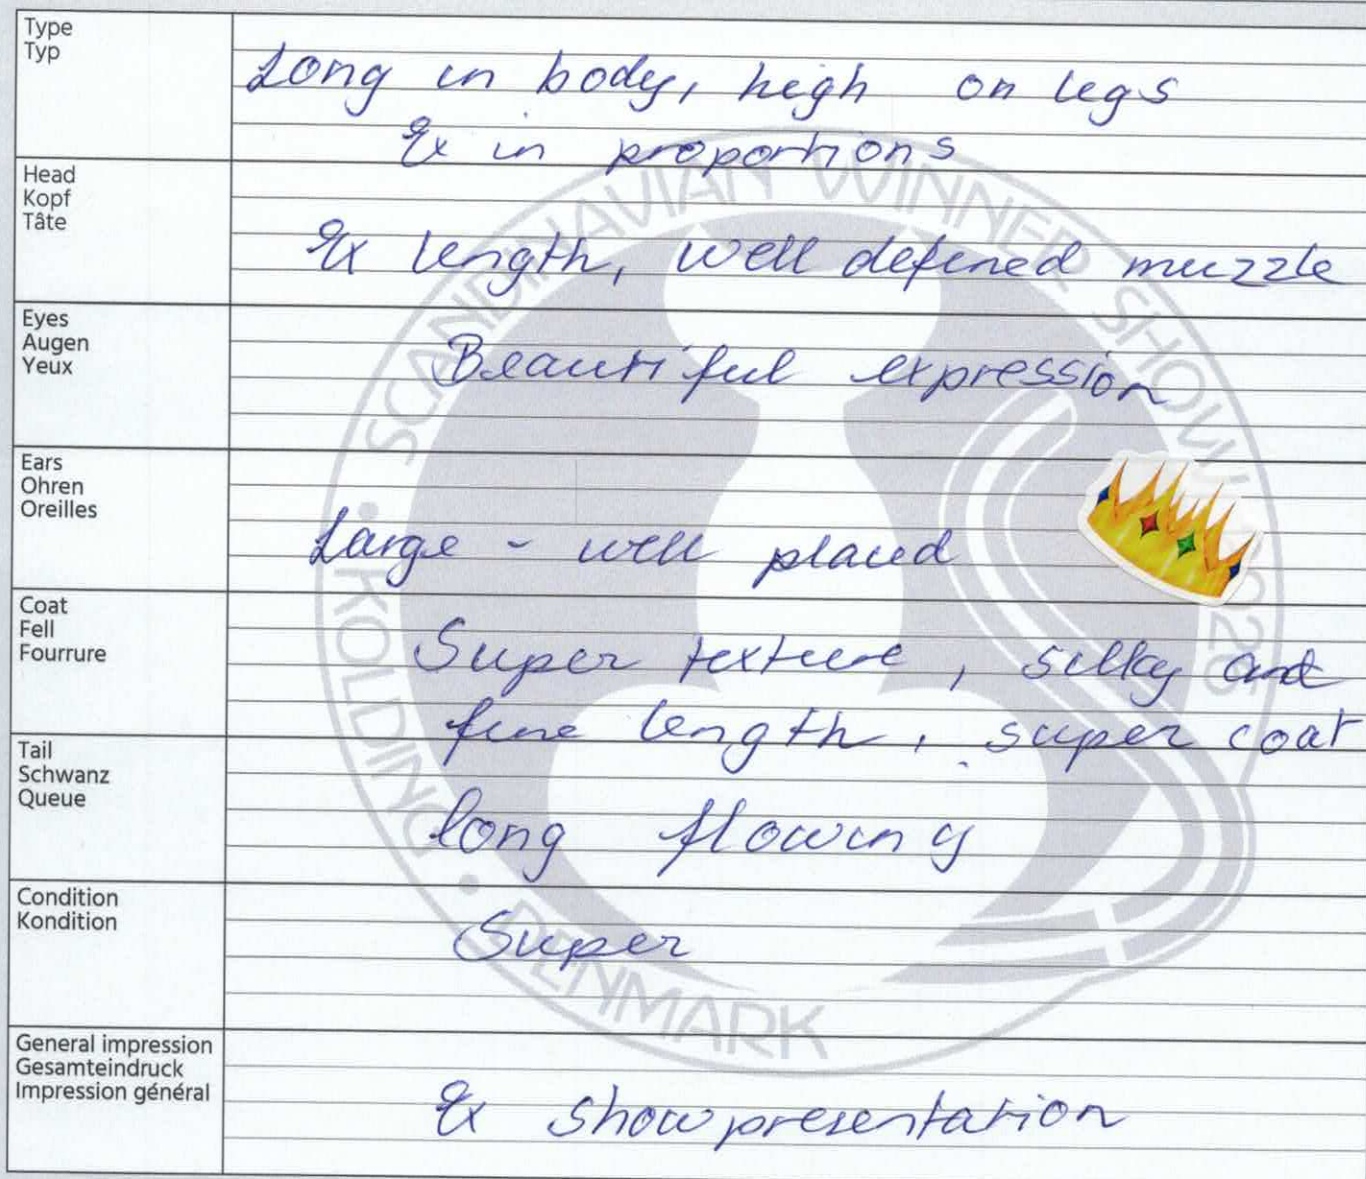 Type
Typ
Long in body, high on legs
Ex in proportions
Head
Kopf
Tâte
Ex length, well defined muzzle
Eyes
Augen
Yeux
Beautiful expression
Ears
Ohren
Oreilles
Large - well placed
Coat
Fell
Fourrure
Super texture, silky and
fine length, super coat
Tail
Schwanz
Queue
long flowing
Condition
Kondition
Super
General impression
Gesamteindruck
Impression général
Ex showpresentation
SCANDINAVIAN WINNER SHOW
KOLDING · DENMARK